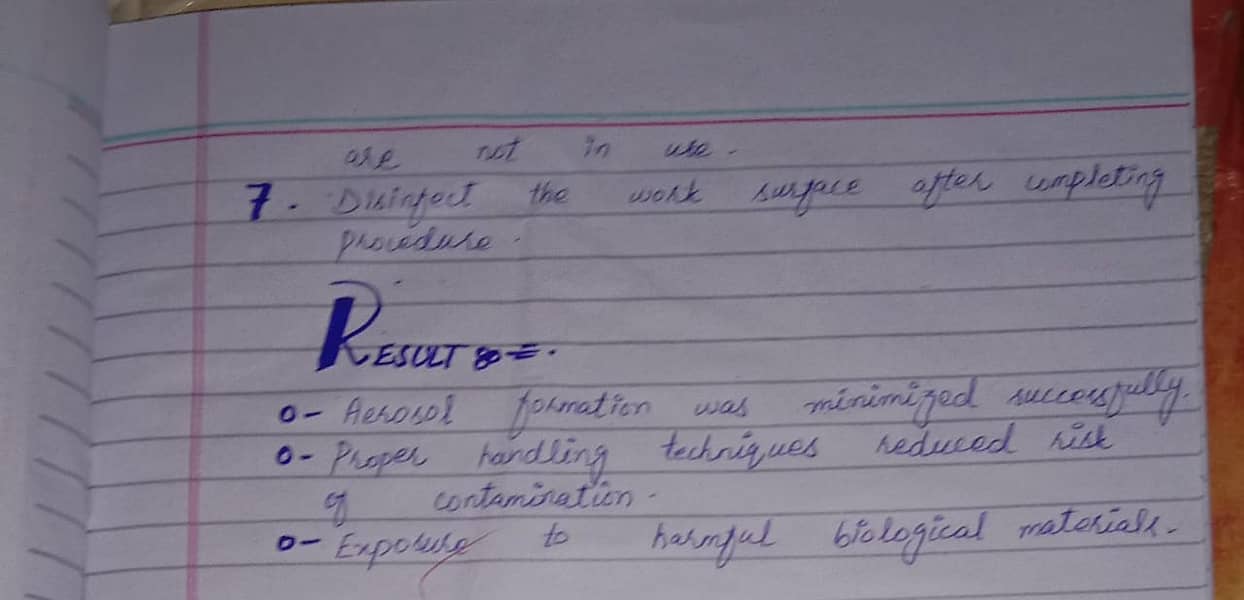 are not in use.
7. Disinfect the work surface after completing
procedure.
RESULT :- .
o- Aerosol formation was minimized successfully.
o- Proper handling techniques reduced risk
of contamination.
o- Exposure to harmful biological materials.